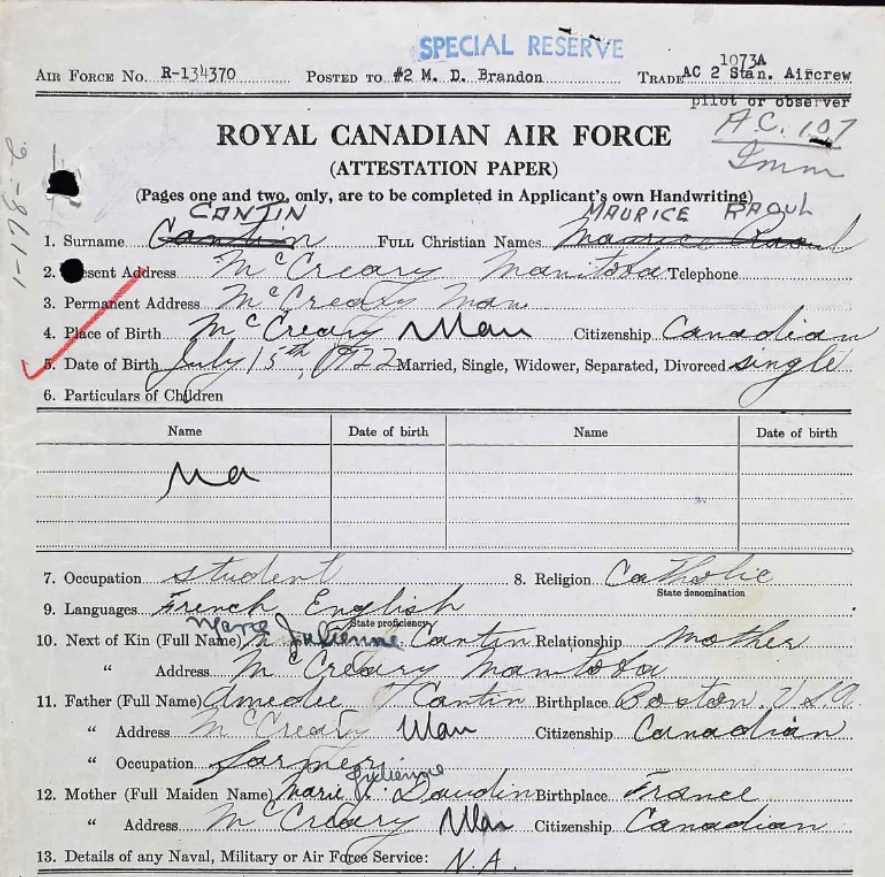 SPECIAL RESERVE
1073A
AIR FORCE NO. R-134370 POSTED TO #2 M. D. Brandon TRADE AC 2 Stan. Aircrew
pilot or observer
A.C. 107
ROYAL CANADIAN AIR FORCE
(ATTESTATION PAPER)
(Pages one and two, only, are to be completed in Applicant's own Handwriting)
CANTIN MAURICE RAOUL
1. Surname Cantin FULL Christian Names Maurice Raoul
2. Present Address McCreary Manitoba Telephone
3. Permanent Address McCreary Man
4. Place of Birth McCreary Man Citizenship Canadian
5. Date of Birth July 15th, 1922 Married, Single, Widower, Separated, Divorced single
6. Particulars of Children
Name Date of birth Name Date of birth
Na
7. Occupation student 8. Religion Catholic
State denomination
9. Languages French English
State proficiency
10. Next of Kin (Full Name) Marie Julienne Cantin Relationship Mother
" Address McCreary Manitoba
11. Father (Full Name) Amedee J Cantin Birthplace Boston. USA.
" Address McCreary Man Citizenship Canadian
" Occupation farmer
Julienne
12. Mother (Full Maiden Name) Marie J. Daudin Birthplace France
" Address McCreary Man Citizenship Canadian
13. Details of any Naval, Military or Air Force Service: N.A.